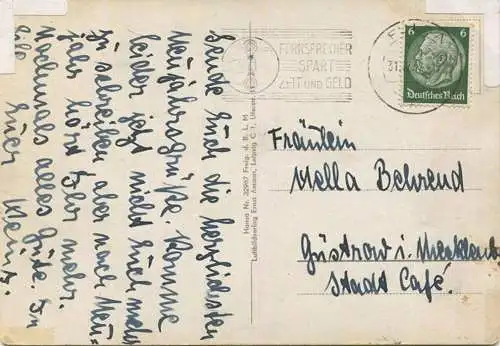 Sende Euch die herzlichsten
Neujahrsgrüße. Komme
leider jetzt nicht Euch mehr
zu schreiben aber nach Neu-
jahr hört Ihr mehr.
Nochmals alles Gute. In
Liebe Euer Heinz.
Hansa Nr. 32997 Freig. d. R. L. M
Luftbildverlag Ernst Assmus, Leipzig C. 1.
FERNSPRECHER
SPART
ZEIT UND GELD
31.
6 6
Deutsches Reich
Fräulein
Mella Behrend
Güstrow i. Mecklenb.
Stadt Café.